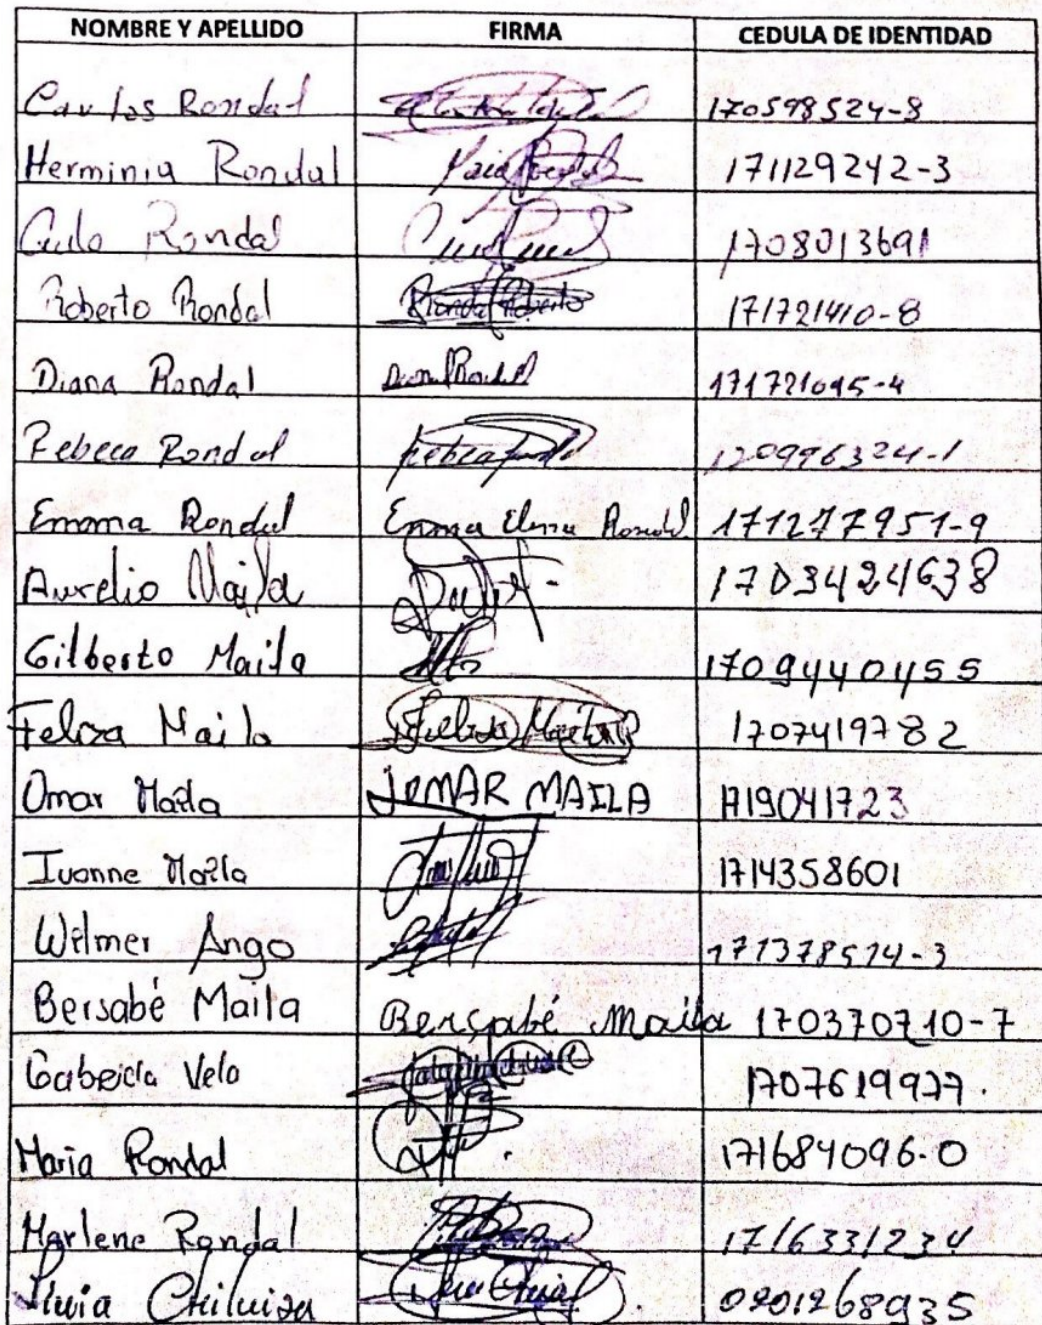 NOMBRE Y APELLIDO FIRMA CEDULA DE IDENTIDAD
Carlos Rondal 170598524-8
Herminia Rondal 171129242-3
Rondal 1708013691
Roberto Rondal Rondal Roberto 171721410-8
Diana Rondal Diana Rondal 171721095-4
Rebeca Rondal 170996324-1
Emma Rondal Emma Elena Rondal 171277951-9
Aurelio Maila 1703424638
Gilberto Maila 1709440455
Feliza Maila Feliza Maila 1707419782
Omar Maila JOMAR MAILA 1719041723
Ivonne Maila 1714358601
Wilmer Ango 171378514-3
Bersabé Maila Berçabé Maila 170370710-7
Gabriela Vela 1707619977.
Maria Rondal 171684096-0
Marlene Rondal 1716331234
Chiluiza 0201268935